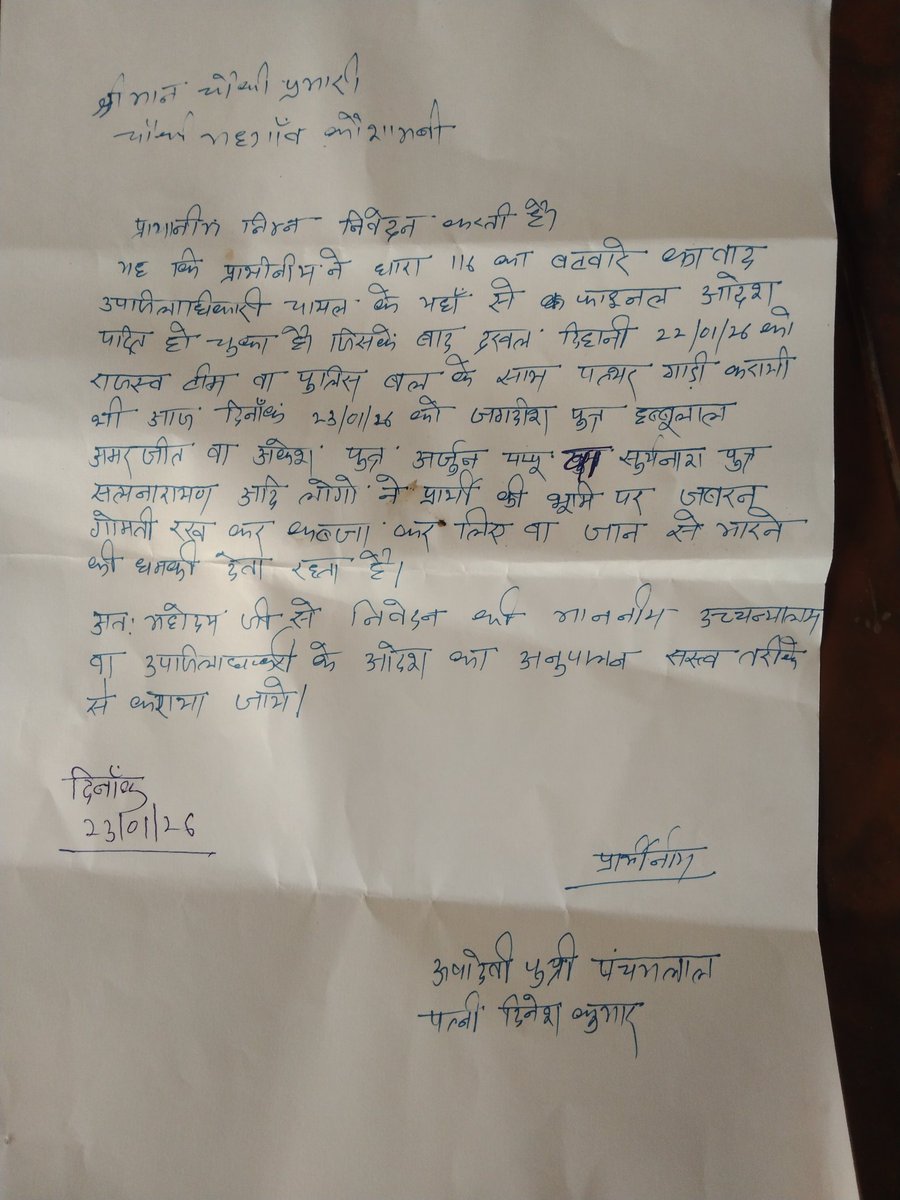 श्रीमान चौकी प्रभारी
चौकी महगाँव कौशाम्बी
प्रार्थनीय निम्न निवेदन करती है।
यह कि प्रार्थीनीय ने धारा 116 का बटवारे का वाद
उपाजिलाधिकारी चायल के यहाँ से फाइनल आदेश
पारित हो चुका है। जिसके बाद दखल दिहानी 22/01/26 को
राजस्व टीम वा पुलिस बल के साथ पत्थर गाड़ी करायी
थी आज दिनाँक 23/01/26 को जगदीश पुत्र हब्बूलाल
अमरजीत वा अंकेश पुत्र अर्जुन पप्पू सुर्यनारा पुत्र
सत्यनारायण आदि लोगो ने प्रार्थी की भूमि पर जबरन
गोमती रख कर कबजा कर लिए वा जान से मारने
की धमकी देता रहता है।
अतः महोदय जी से निवेदन की माननीय उच्चन्यालय
वा उपाजिलाधिकारी के आदेश का अनुपालन सख्त तरीके
से कराया जाये।
दिनाँक
23/01/26
प्रार्थीनीय
ऊषादेवी पुत्री पंचमलाल
पत्नी दिनेश कुमार